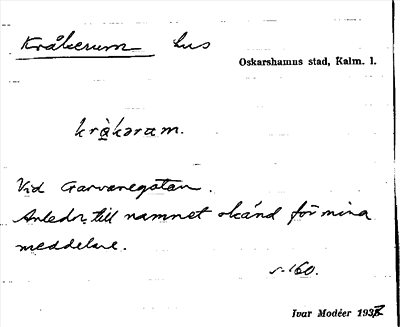 Kråkerum hus
Oskarshamns stad, Kalm. l.
kràkəram.
Vid Garvaregatan.
Anledn. till namnet okänd för mina
meddelare.
s. 160.
Ivar Modéer 1937